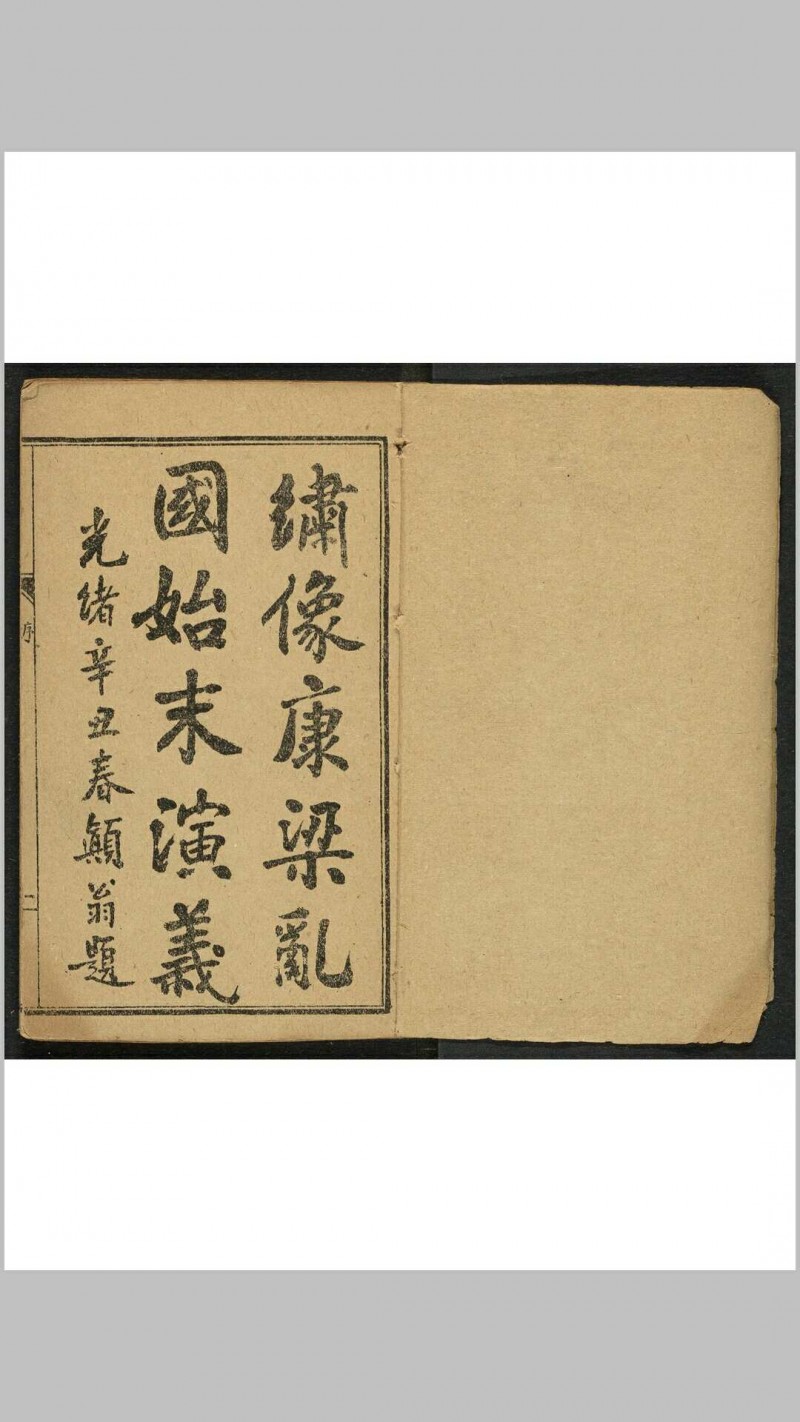 繡像康梁亂
國始末演義
光緒辛丑春顛翁題
序
一